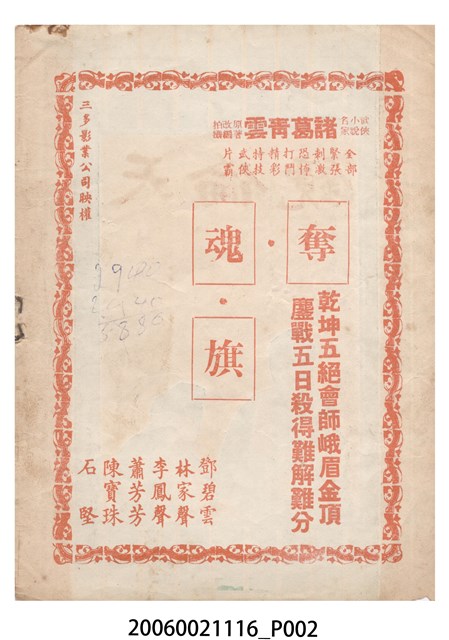 武俠小說名家
諸葛青雲
原著改編拍攝
全部緊張刺激恐怖打鬥精彩特技武俠片霸
奪・魂・旗
乾坤五絕會師峨眉金頂
鏖戰五日殺得難解難分
鄧碧雲
林家聲
李鳳聲
蕭芳芳
陳寶珠
石堅
三多影業公司映權
20060021116_P002